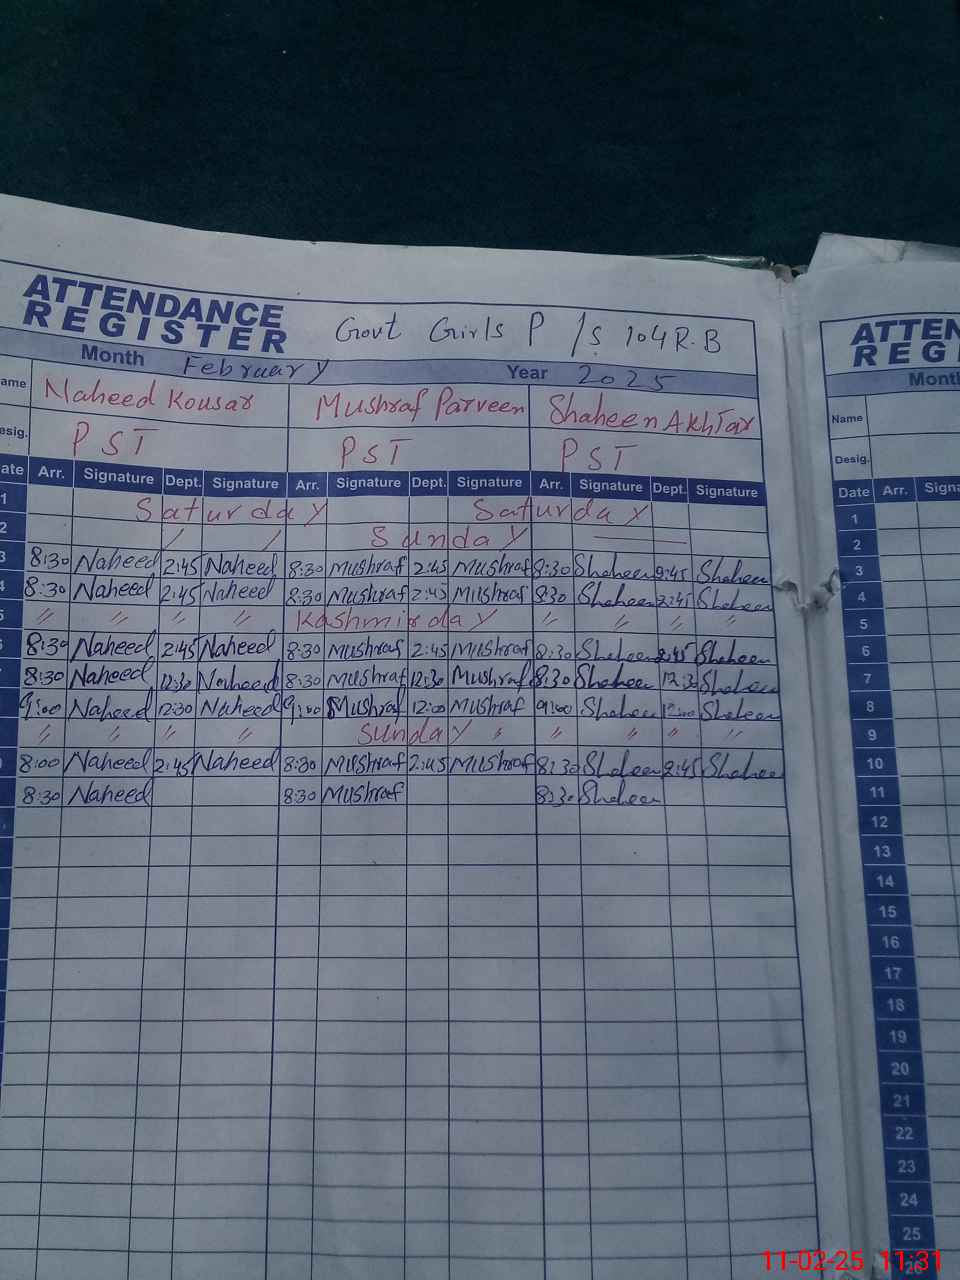 ATTENDANCE
REGISTER Govt Girls P/S 104 R.B
Month February Year 2025
ame Naheed Kousar Mushraf Parveen Shaheen Akhtar
esig. PST PST PST
ate Arr. Signature Dept. Signature Arr. Signature Dept. Signature Arr. Signature Dept. Signature
1 Saturday Saturday
2 Sunday
3 8:30 Naheed 2:45 Naheed 8:30 Mushraf 2:45 Mushraf 8:30 Shaheen 2:45 Shaheen
4 8:30 Naheed 2:45 Naheed 8:30 Mushraf 2:45 Mushraf 8:30 Shaheen 2:45 Shaheen
5 " " " " Kashmir day " " " "
6 8:30 Naheed 2:45 Naheed 8:30 Mushraf 2:45 Mushraf 8:30 Shaheen 2:45 Shaheen
8:30 Naheed 12:30 Naheed 8:30 Mushraf 12:30 Mushraf 8:30 Shaheen 12:30 Shaheen
9:00 Naheed 12:30 Naheed 9:00 Mushraf 12:00 Mushraf 9:00 Shaheen 12:00 Shaheen
" " " " Sunday " " " " "
8:00 Naheed 2:45 Naheed 8:30 Mushraf 2:45 Mushraf 8:30 Shaheen 2:45 Shaheen
8:30 Naheed 8:30 Mushraf 8:30 Shaheen
ATTEN
REGI
Month
Name
Desig.
Date Arr. Signa
1
2
3
4
5
6
7
8
9
10
11
12
13
14
15
16
17
18
19
20
21
22
23
24
25
26
11-02-25 11:31